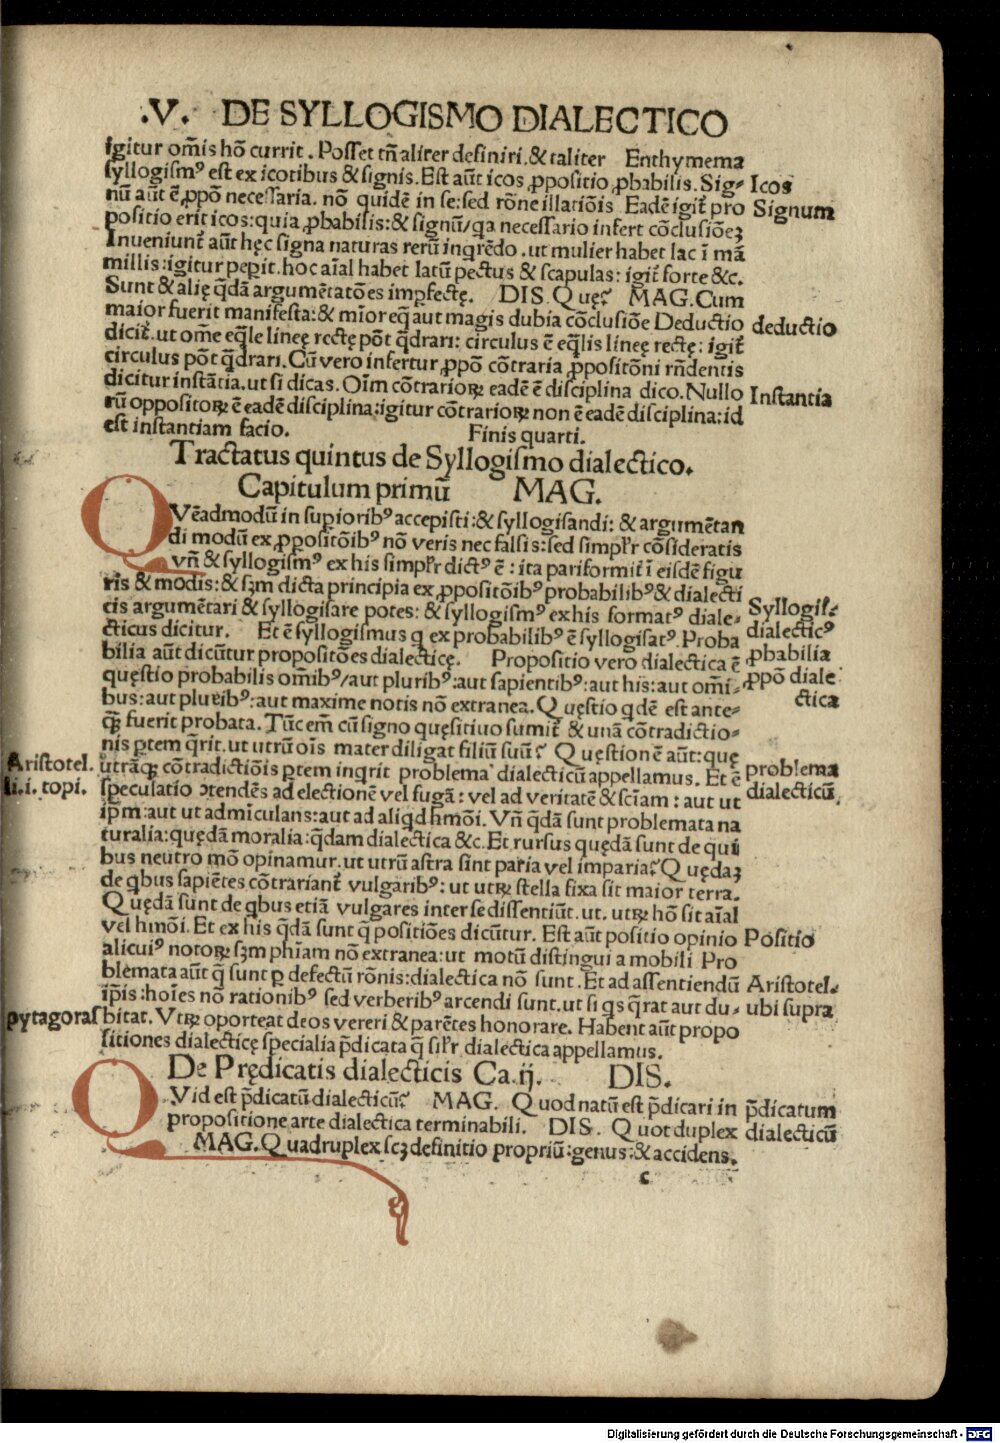 .V. DE SYLLOGISMO DIALECTICO
igitur om̃is hõ currit. Posset tñ aliter definiri. & taliter Enthymema
syllogismꝰ est ex icotibus & signis. Est aũt icos ꝓpositio ꝓbabilis. Sig⸗
Icos
nũ aũt ẽ ꝓpõ necessaria. nõ quidẽ in se: sed rõne illatiõis Eadẽ igit̃ pro
Signum
positio erit icos: quia ꝓbabilis: & signũ/ qa necessario infert cõclusiõeȝ
Inueniunt̃ aũt hęc signa naturas rerũ inqrẽdo. ut mulier habet lac ĩ mã
millis: igitur peꝑit. hoc aĩal habet latũ pectus & scapulas: igit̃ forte &c.
Sunt & alię q̃dã argumẽtatões imꝑfectę. DIS. Quę? MAG. Cum
maior fuerit manifesta: & mĩor eq̃ aut magis dubia cõclusiõe Deductio
deductio
dicit̃. ut om̃e eq̃le lineę rectę põt q̃drari: circulus ẽ eq̃lis lineę rectę: igit̃
circulus põt q̃drari. Cũ vero infertur ꝓpõ cõtraria ꝓpositõni rñdentis
dicitur instãtia. ut si dicas. Oĩm cõtrarioꝝ eadẽ ẽ disciplina dico. Nullo
Instantia
rũ oppositoꝝ ẽ eadẽ disciplina: igitur cõtrarioꝝ non ẽ eadẽ disciplina: id
est instantiam facio. Finis quarti.
Tractatus quintus de Syllogismo dialectico.
Capitulum primũ MAG.
QVẽadmodũ in supioribꝰ accepisti: & syllogisandi: & argumẽtan
di modũ ex ꝓpositõibꝰ nõ veris nec falsis: sed simpl̃r cõsideratis
vñ & syllogismꝰ ex his simpl̃r dictꝰ ẽ: ita pariformit̃ ĩ eisdẽ figu
ris & modis: & sȝm dicta principia ex ꝓpositõibꝰ probabilibꝰ & dialecti
cis argumẽtari & syllogisare potes: & syllogismꝰ ex his formatꝰ diale⸗
Syllogis̃⸗
cticus dicitur. Et ẽ syllogismus q ex probabilibꝰ ẽ syllogisatꝰ. Proba
dialecticꝰ
bilia aũt dicũtur propositões dialecticę. Propositio vero dialectica ẽ
ꝓbabilia
quęstio probabilis om̃ibꝰ/ aut pluribꝰ: aut sapientibꝰ: aut his: aut om̃i⸗
ꝓpõ diale
bus: aut pluribꝰ: aut maxime notis nõ extranea. Quęstio qdẽ est ante⸗
ctica
q̃ꝫ fuerit probata. Tũc em̃ cũ signo quęsitiuo sumit̃ & unã cõtradictio⸗
nis ꝑtem q̃rit. ut utrũ oĩs mater diligat filiũ suũ? Quęstionẽ aũt: que
Aristotel.
utrãqꝫ cõtradictiõis ꝑtem inqrit problema dialecticũ appellamus. Et ẽ
problema
li. i. topi.
speculatio ↄtendẽs ad electionẽ vel fugã: vel ad veritatẽ & scĩam: aut ut
dialecticũ.
ip̃m: aut ut admĩculans: aut ad aliqd hmõi. Vñ q̃dã sunt problemata na
turalia: quędã moralia: q̃dam dialectica &c. Et rursus quędã sunt de qui
bus neutro mõ opinamur. ut utrũ astra sint paria vel imparia? Quędaȝ
de qbus sapiẽtes cõtrariant̃ vulgaribꝰ: ut utꝝ stella fixa sit maior terra.
Quędã sunt de qbus etiã vulgares inter se dissentiũt. ut. utꝝ hõ sit aĩal
vel hmõi. Et ex his q̃dã sunt q̃ positiões dicũtur. Est aũt positio opinio
Positio
alicuiꝰ notoꝝ sȝm phĩam nõ extranea: ut motũ distingui a mobili Pro
blemata aũt q̃ sunt ꝑ defectũ rõnis: dialectica nõ sunt. Et ad assentiendũ
Aristotel.
ip̃is: hoĩes nõ rationibꝰ sed verberibꝰ arcendi sunt. ut si qs q̃rat aut du⸗
ubi supra
pytagoras
bitat. Vtꝝ oporteat deos vereri & parẽtes honorare. Habent aũt propo
sitiones dialecticę specialia p̃dicata q̃ sil̃r dialectica appellamus.
De Prędicatis dialecticis Ca. ij. DIS.
QVid est p̃dicatũ dialecticũ? MAG. Quod natũ est p̃dicari in
p̃dicatum
propositione arte dialectica terminabili. DIS. Quot duplex
dialecticũ
MAG. Quadruplex scȝ definitio propriũ: genus: & accidens.
c
Digitalisierung gefördert durch die Deutsche Forschungsgemeinschaft - DFG